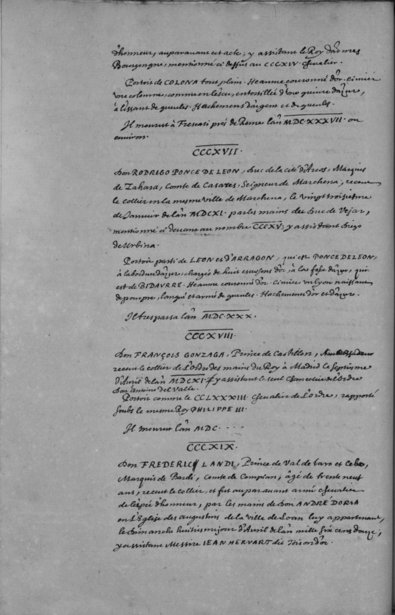 d'honneur, auparavant cet acte, y assistant le Roy d'armes
Bourgongne, mentionné cy dessus au CCCXIV Chevalier.
Portoit de COLONA tout plain. Heaume couronné d'or. Cimier
une colomne, comme en l'escu, entortillée d'une guivre d'azur,
à l'issant de gueules. Hachemens d'argent et de gueules.
Il mourut à Frescati près de Rome l'an MDCXXXVII. ou
environ.
CCCXVII.
Don RODRIGO PONCE DE LEON, Duc de la cité d'Arcos, Marquis
de Zahara, Comte de Casares, Seigneur de Marchena, receut
le collier en la mesme ville de Marchena, le vingt troisiesme
de Janvier de l'an MDCXI. par les mains du Duc de Vejar,
mentionné cy devant au nombre CCCXV, y assistant Diego
de Urbina.
Portoit parti de LEON et d'ARRAGON, qui est PONCE DE LEON,
à la bordure d'azur, chargée de huit escussons d'or, à la fasce d'azur, qui
est de BIDAVRRE. Heaume couronné d'or. Cimier un lyon naissant
de pourpre, langué et armé de gueules. Hachemens d'or et d'azur.
Il trespassa l'an MDCXXX.
CCCXVIII.
Don FRANÇOIS GONZAGA, Prince de Castillon,
receut le collier de l'Ordre des mains du Roy à Madrid le septiesme
d'Avril de l'an MDCXI. y assistant le seul Chancelier de l'Ordre
Don Antoine del Valle.
Portoit comme le CCLXXXIII Chevalier de l'Ordre, rapporté
soubs le mesme Roy PHILIPPE III.
Il mourut l'an MDC....
CCCXIX.
Don FREDERIC LANDI, Prince de Val de Taro et Ceno,
Marquis de Bardi, Comte de Compian, âgé de trente neuf
ans, receut le collier, et fut auparavant armé Chevalier
de l'espée d'honneur, par les mains de Don ANDRE DORIA
en l'Eglise des Augustins de la ville de Loan luy appartenant,
le Dimanche huitiesme jour d'Avril de l'an mille six cens douze,
y assistant Messire JEAN HERVART dit Thoison d'or.